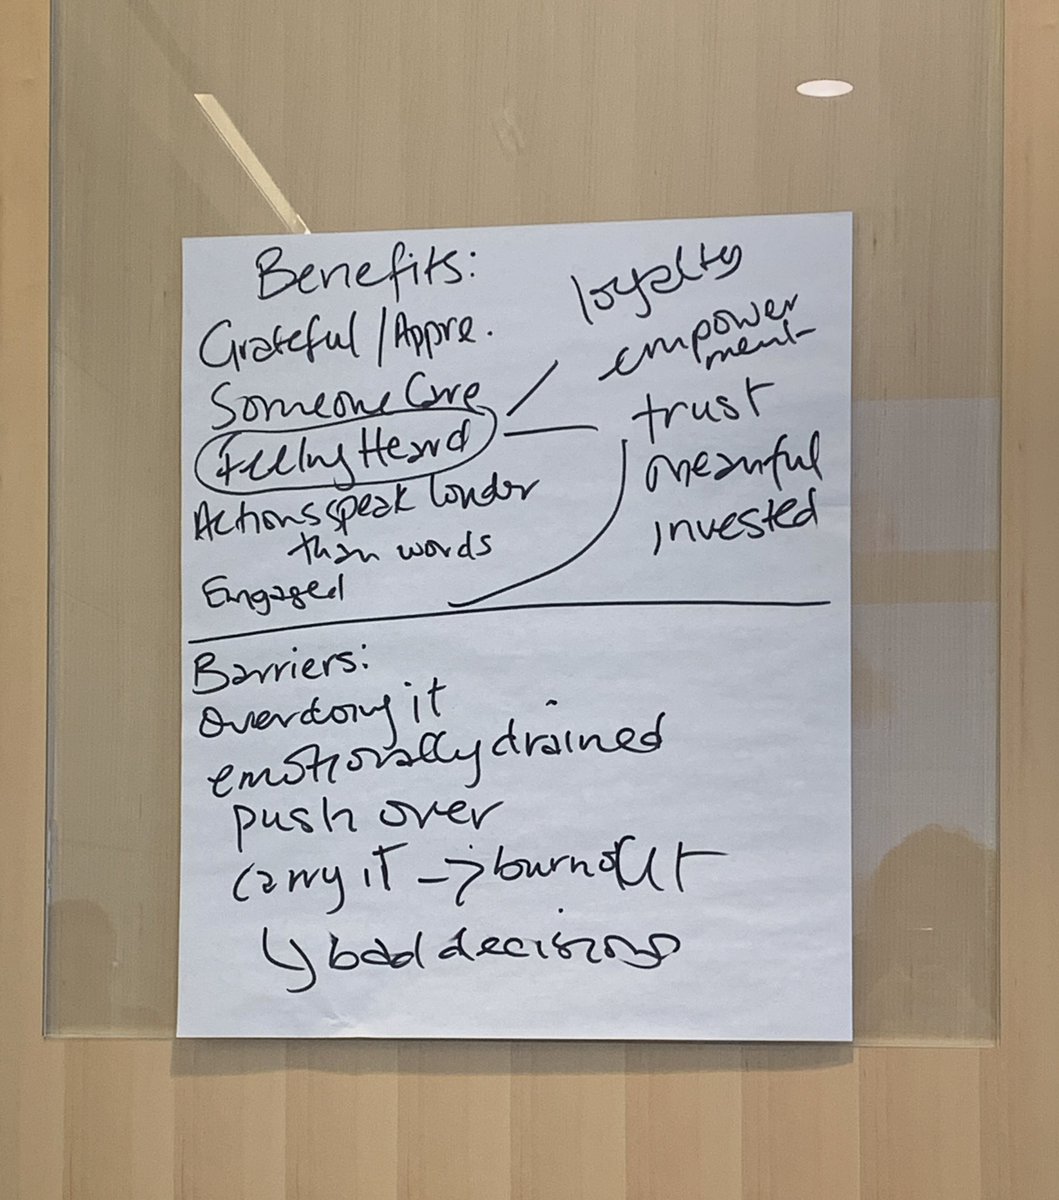 Benefits:
Grateful / Appre.
Someone Care
Feeling Heard
Actions speak louder
than words
Engaged
loyalty
empower
ment
trust
meanful
invested
Barriers:
overdoing it
emotionally drained
push over
carry it → burnout
↳ bad decisions